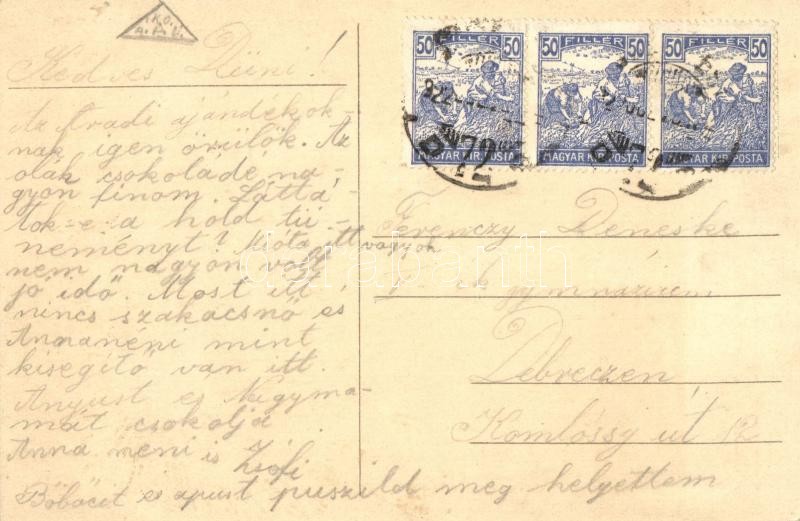 Kedves Düni!
Az Aradi ajándékok-
nak igen örülök. Az
oláh csokoládé na-
gyon finom. Láttá-
tok-e a hold tü-
neményt? Mióta itt vagyok
nem nagyon volt
jó idő. Most itt
nincs szakácsnő es
Annanéni mint
kisegítő van itt.
Anyust es Nagyma-
mát csokolja
Anna neni is Zsófi
Böböcit es apust puszild meg helyettem
50 FILLÉR 50
MAGYAR KIR. POSTA
50 FILLÉR 50
MAGYAR KIR. POSTA
50 FILLÉR 50
MAGYAR KIR. POSTA
Ferenczy Deneske
gymnazium
Debreczen
Komlóssy út 12
darabanth